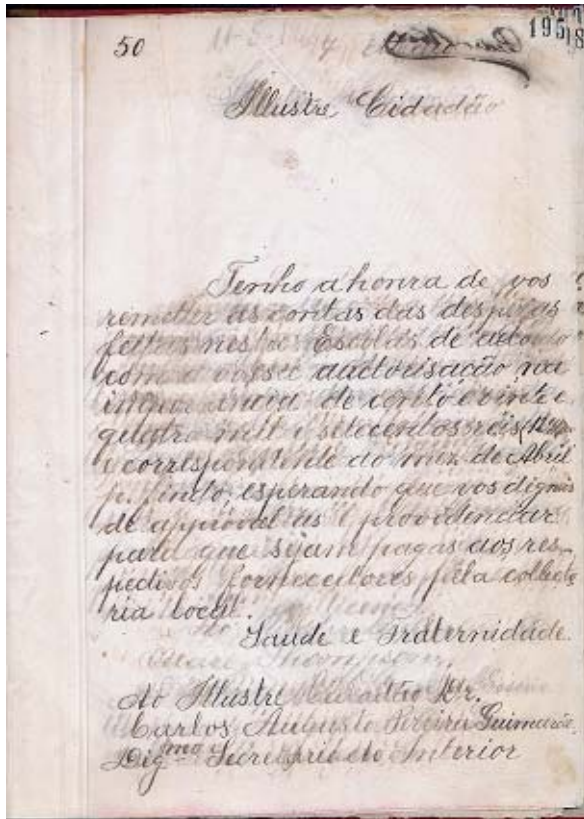 50
195
18
Illustre Cidadão
Tenho a honra de vos
remetter as contas das despezas
feitas nestas Escolas de accordo
com a vossa auctorisação na
importancia de cento e vinte e
quatro mil e setecentos réis
e correspondente ao mez de Abril
p. findo, esperando que vos digneis
de approval-as e providenciar
para que sejam pagas aos res-
pectivos fornecedores pela collecto
ria local.
Saude e Fraternidade.
Ao Illustre Cidadão Dr.
Carlos Augusto Pereira Guimarães,
Dig.mo Secretario do Interior